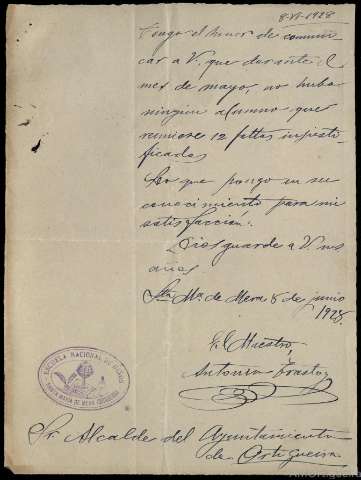 8-VI-1928
Tengo el honor de comuni
car a V. que durante el
mes de mayo, no hubo
ningun alumno que
reuniese 12 faltas injusti
ficadas
Lo que pongo en su
conocimiento para mi
satisfacción.
Dios guarde a V. ms
años.
Sta Mª. de Mera 8 de junio
1928.
El Maestro,
Antonio
ESCUELA NACIONAL DE NIÑOS
SANTA MARIA DE MERA (ORTIGUEIRA)
Sr. Alcalde del Ayuntamiento
de Ortigueira